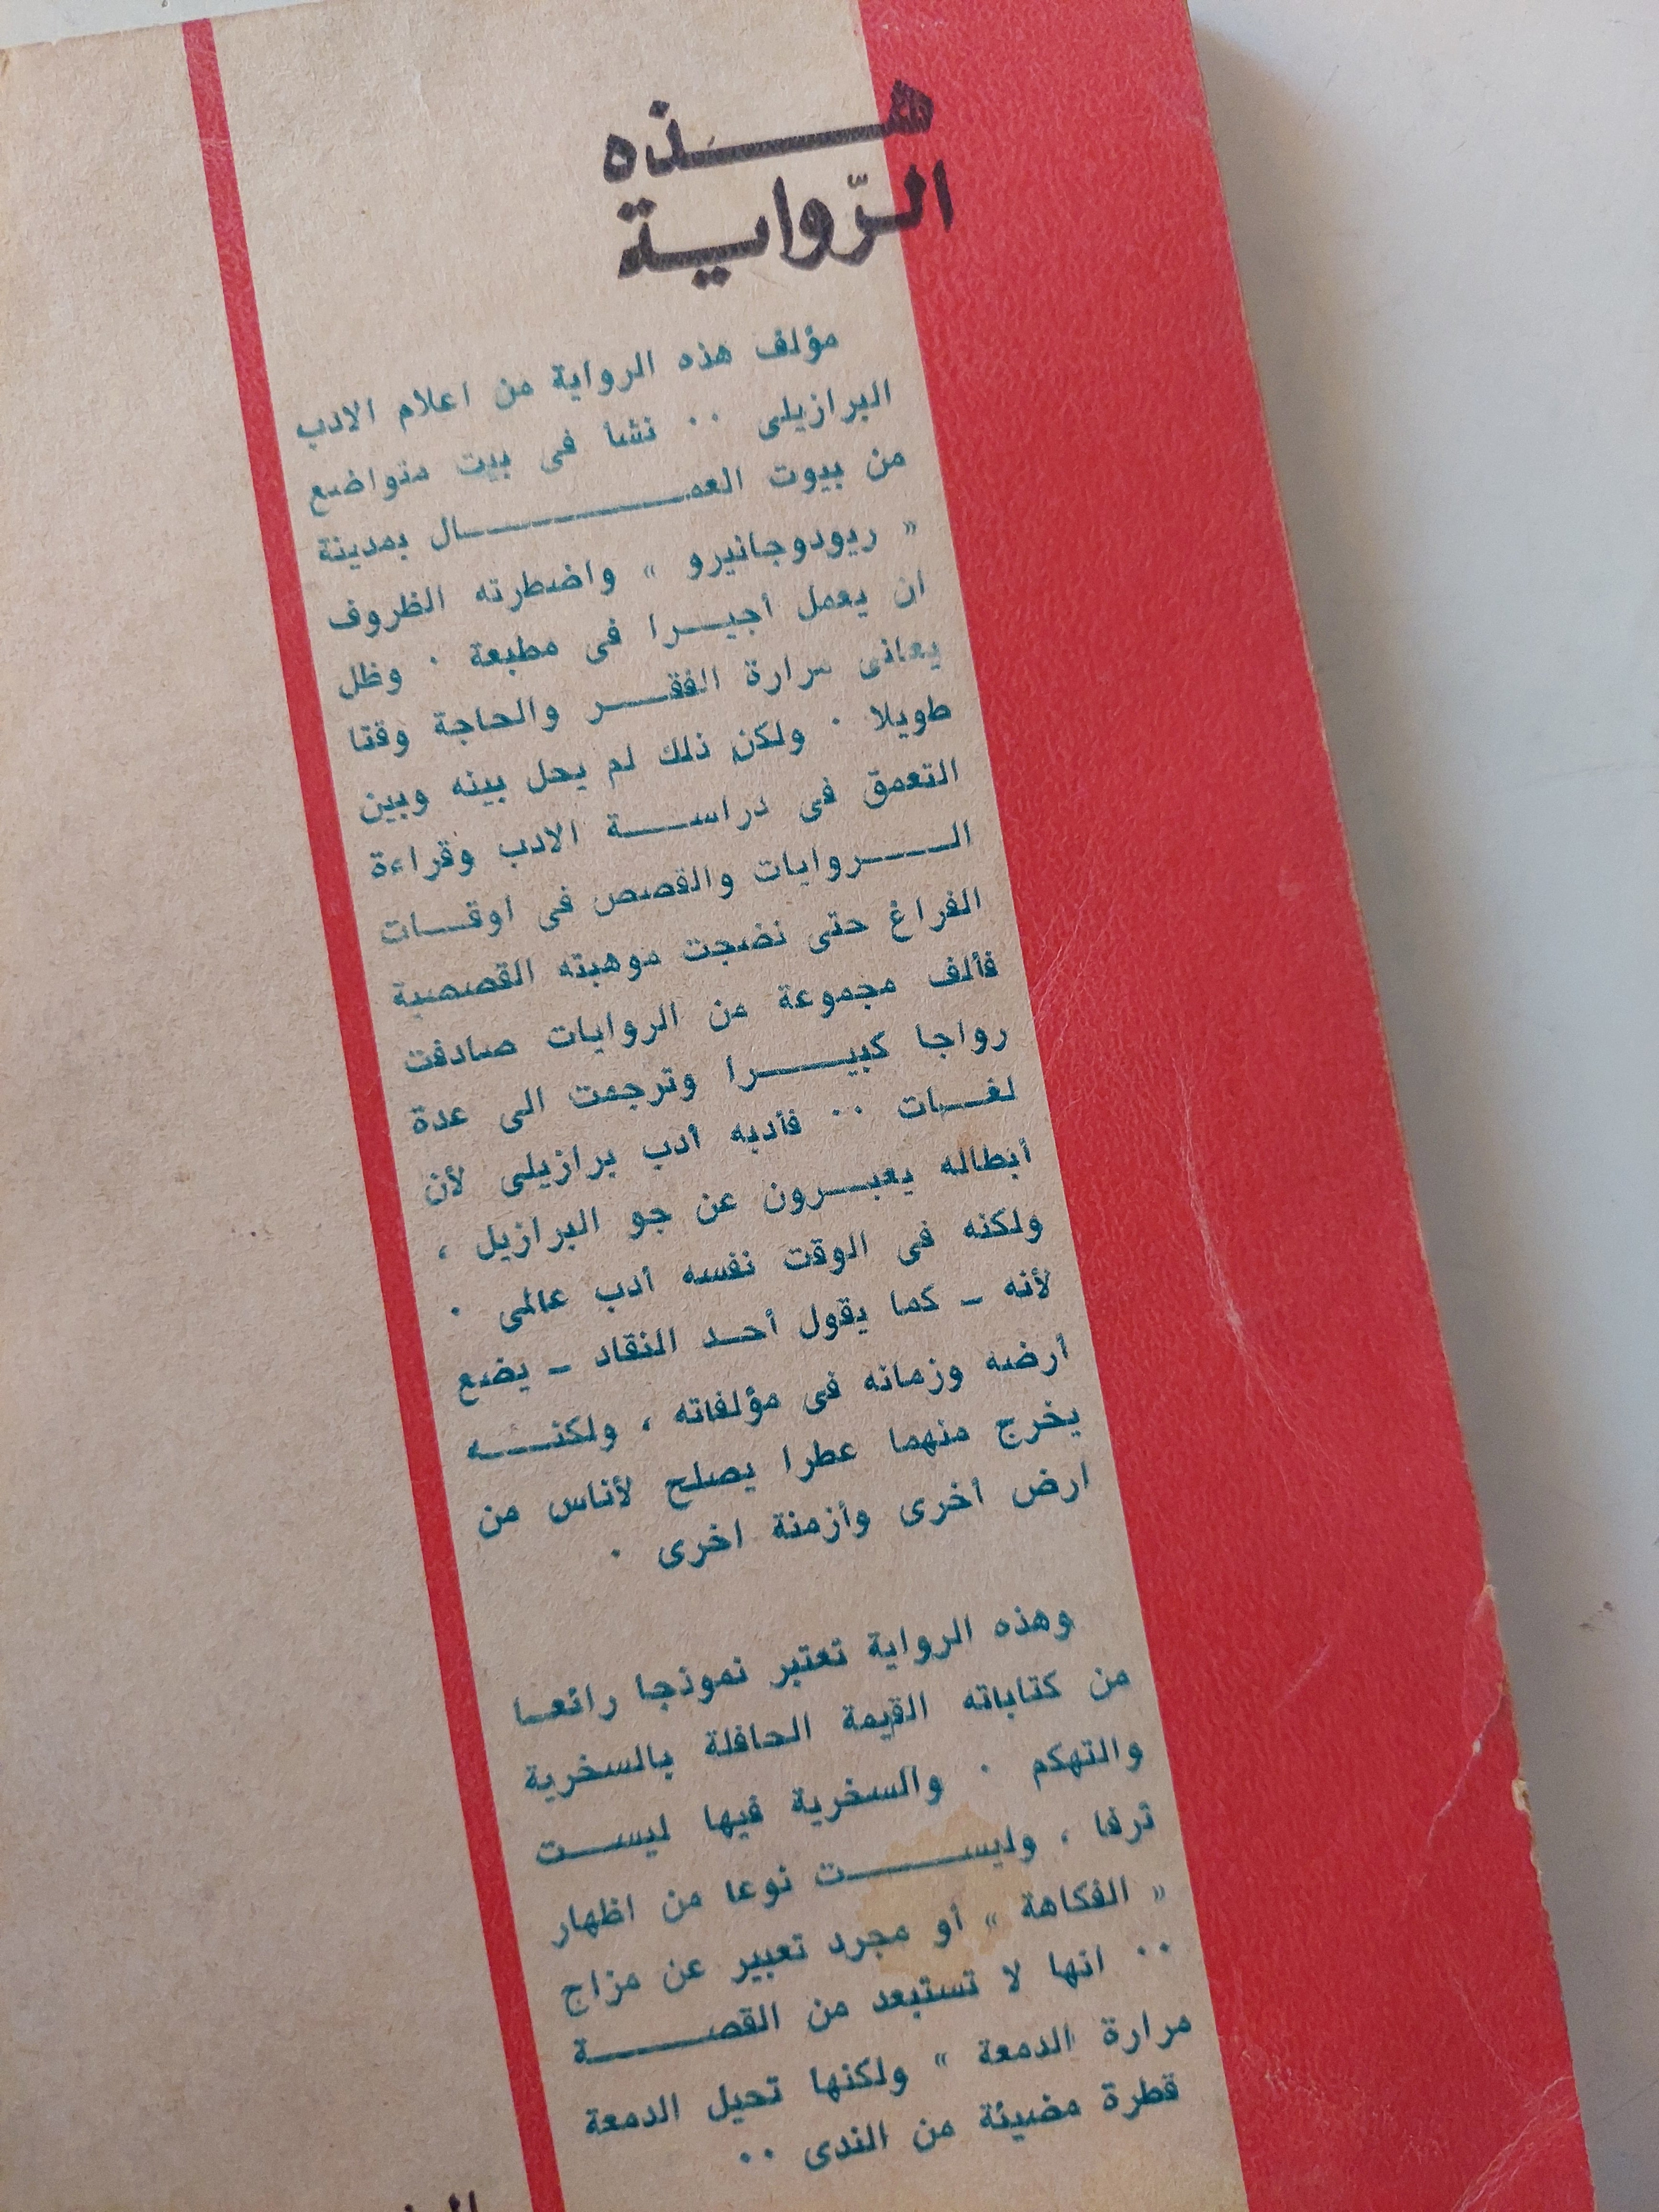 هذه
الرّواية
مؤلف هذه الرواية من اعلام الادب
البرازيلى ٠٠ نشأ فى بيت متواضع
من بيوت العمال بمدينة
« ريودوجانيرو » واضطرته الظروف
ان يعمل أجيرا فى مطبعة ٠ وظل
يعانى مرارة الفقر والحاجة وقتا
طويلا ٠ ولكن ذلك لم يحل بينه وبين
التعمق فى دراسة الادب وقراءة
الروايات والقصص فى اوقات
الفراغ حتى نضجت موهبته القصصية
فألف مجموعة من الروايات صادفت
رواجا كبيرا وترجمت الى عدة
لغات ٠٠ فأدبه أدب برازيلى لأن
أبطاله يعبرون عن جو البرازيل ،
ولكنه فى الوقت نفسه أدب عالمى ٠
لأنه ـ كما يقول أحد النقاد ـ يضع
أرضه وزمانه فى مؤلفاته ، ولكنه
يخرج منهما عطرا يصلح لأناس من
ارض أخرى وأزمنة اخرى ٠
وهذه الرواية تعتبر نموذجا رائعا
من كتاباته القيمة الحافلة بالسخرية
والتهكم ٠ والسخرية فيها ليست
ترفا ، وليست نوعا من اظهار
« الفكاهة » أو مجرد تعبير عن مزاج
٠٠ انها لا تستبعد من القصة
مرارة الدمعة » ولكنها تحيل الدمعة
قطرة مضيئة من الندى ٠٠